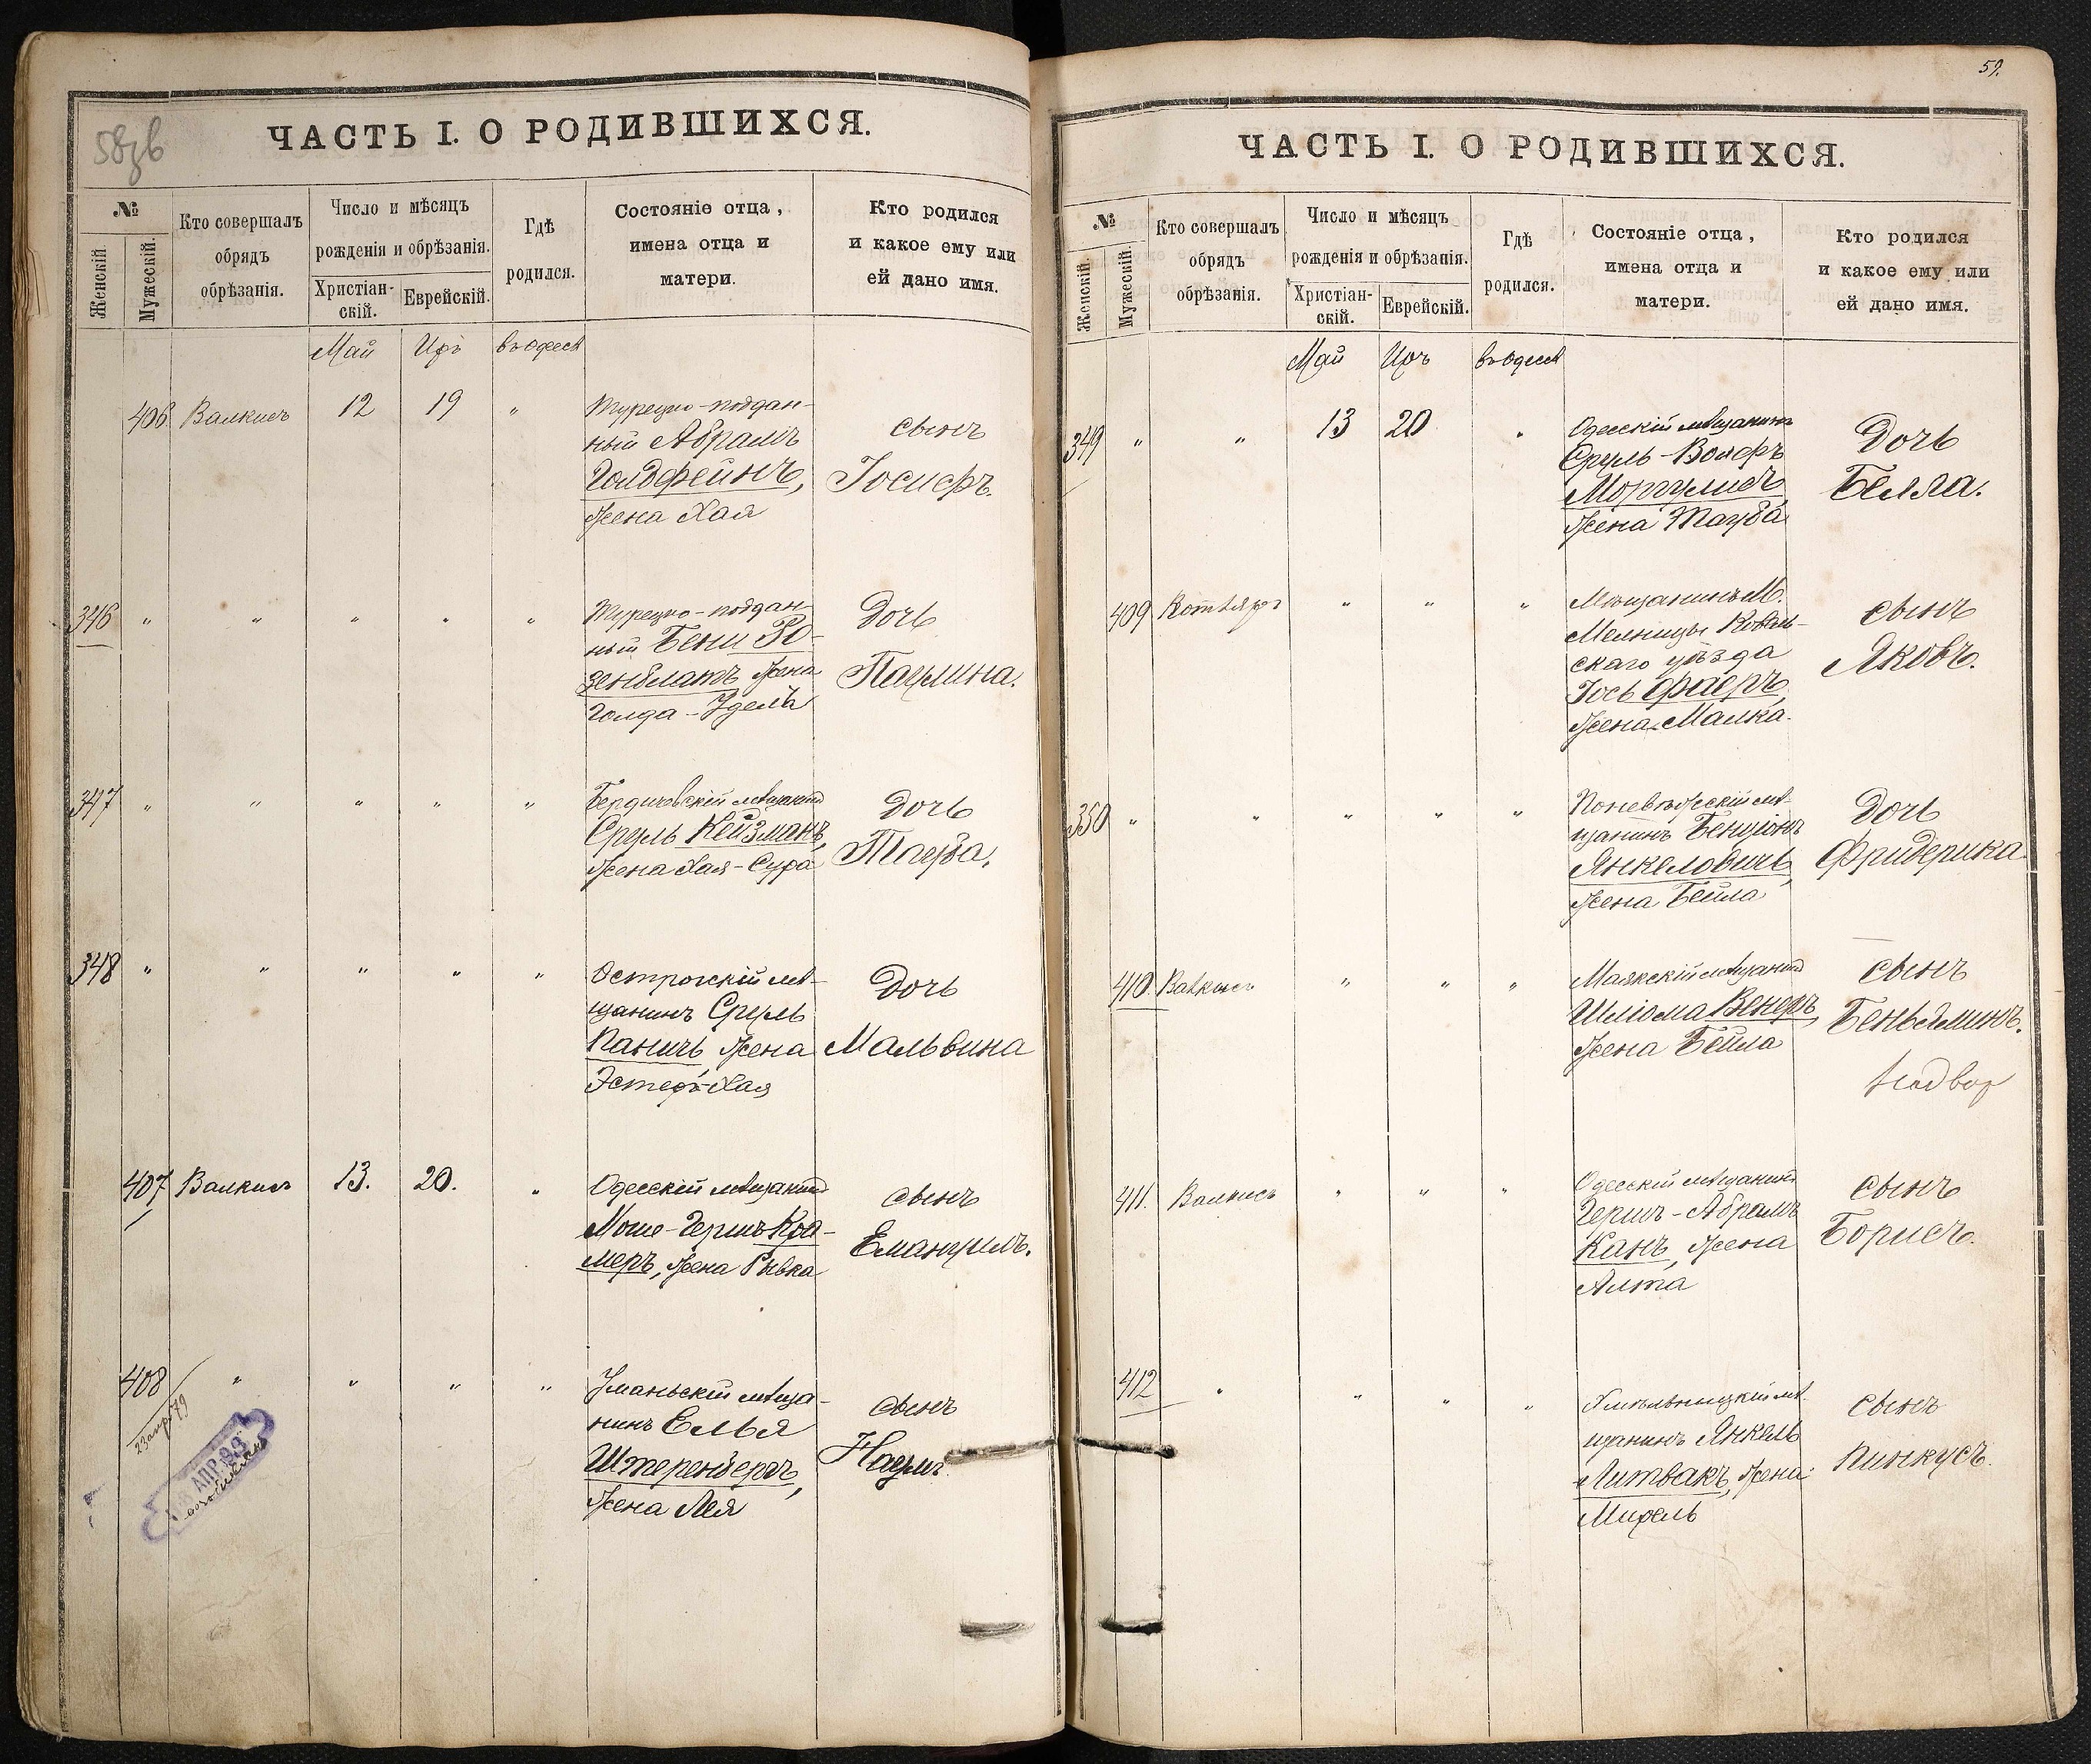 58зв
ЧАСТЬ I. О РОДИВШИХСЯ.
№
Женскій
Мужескій.
Кто совершалъ
обрядъ
обрѣзанія.
Число и мѣсяцъ
рожденія и обрѣзанія.
Христіан-
скій.
Еврейскій.
Гдѣ
родился.
Состояніе отца,
имена отца и
матери.
Кто родился
и какое ему или
ей дано имя.
Май Иръ въ Одессѣ
406. Валкисъ 12 19 "
Турецко-поддан-
ный Абрамъ
Голдфейнъ,
жена Хая
сынъ
Іосифъ.
346 " " " " "
Турецко-поддан-
ный Бени Ро-
зенблатъ жена
Голда-Удель
Дочь
Паулина.
347 " " " " "
Бердичевскій мѣщанинъ
Сруль Кейзманъ,
жена Хая-Сура
Дочь
Тауба.
348 " " " " "
Острогскій мѣ-
щанинъ Сруль
Паничъ, жена
Эстеръ-Хая
Дочь
Мальвина
407 Валкисъ 13. 20. "
Одесскій мѣщанинъ
Моше-Гершъ Кра-
меръ, жена Рывка
сынъ
Емануилъ.
408 " " " "
Уманьскій мѣща-
нинъ Елья
Штеренбергъ,
жена Лея
сынъ
Наумъ
АПР
59.
ЧАСТЬ I. О РОДИВШИХСЯ.
№
Женскій.
Мужескій.
Кто совершалъ
обрядъ
обрѣзанія.
Число и мѣсяцъ
рожденія и обрѣзанія.
Христіан-
скій.
Еврейскій.
Гдѣ
родился.
Состояніе отца,
имена отца и
матери.
Кто родился
и какое ему или
ей дано имя.
Май Иръ въ Одессѣ
349 " " 13 20 "
Одесскій мѣщанинъ
Сруль-Волфъ
Моргулисъ,
жена Тауба
Дочь
Белла.
409 Котляръ " " "
Мѣщанинъ М.
Мелницы Ковель-
скаго уѣзда
Іось Фаеръ,
жена Малка.
сынъ
Яковъ.
350 " " " " "
Поневѣжскій мѣ-
щанинъ Бенціонъ
Янкеловичъ,
жена Бейла
Дочь
Фридерика
410. Валкисъ " " "
Маякскій мѣщанинъ
Шліома Венеръ,
жена Бейла
сынъ
Беньяминъ.
411. Валкисъ " " "
Одесскій мѣщанинъ
Гершъ-Абрамъ
Канъ, жена
Алта
сынъ
Борисъ.
412 " " " "
Хмѣльницкій мѣ-
щанинъ Янкель
Литвакъ, жена
Мирель
сынъ
Пинкусъ.